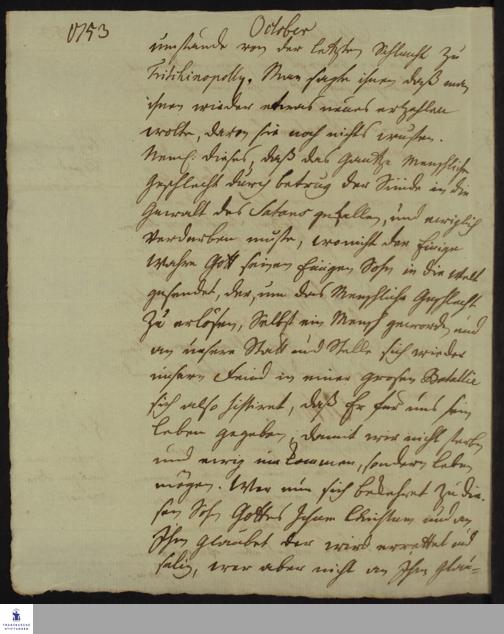 1753 October
umstände von der letzten Schlacht zu
Tritschinopolly. Man sagte ihnen daß man
ihnen wieder etwas neues erzählen
wolte, davon sie noch nichts wusten.
Neml: dieses, daß das gantze Menschliche
Geschlecht durch betrug der Sünde in die
Gewalt des Satans gefallen, und ewiglich
verderben müste, wo nicht der Einige
Wahre Gott seinen Einigen Sohn in die Welt
gesendet, der, um das Menschliche Geschlecht
zu erlösen, Selbst ein Mensch geworden und
an unsere Statt und Stelle sich wieder
unsern Feind in einer grosen Batallie
sich also sistiret, daß Er für uns sein
Leben gegeben, damit wir nicht sterben
und ewig umkommen, sondern leben
mögen. Wer nun sich bekehret zu die-
sen Sohn Gottes Jesum Christum und an
Ihn glaubet der wird errettet und
selig, wer aber nicht an Ihn glau-
FRANCKESCHE
STIFTUNGEN